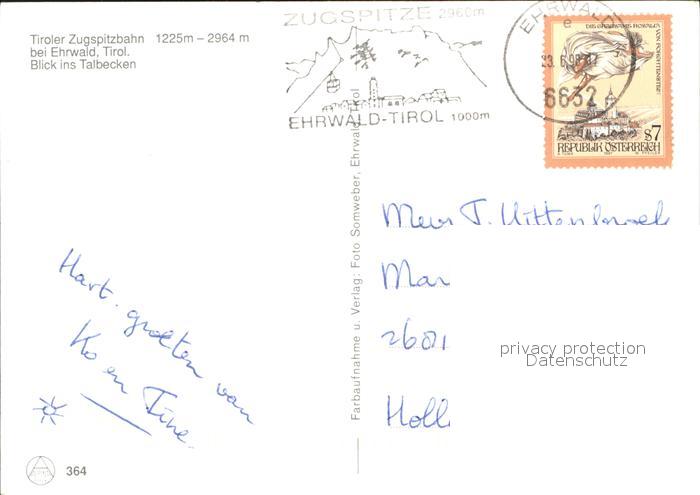 Tiroler Zugspitzbahn 1225m – 2964 m
bei Ehrwald, Tirol.
Blick ins Talbecken
ZUGSPITZE 2960m
EHRWALD-TIROL 1000m
EHRWALD
e
23.6.98
6632
S7
REPUBLIK ÖSTERREICH
Farbaufnahme u. Verlag: Foto Somweber, Ehrwald, Tirol
Mevr T.
Mar
2601
Holl
privacy protection
Datenschutz
Hart. groeten van
Ko en Tine.
364